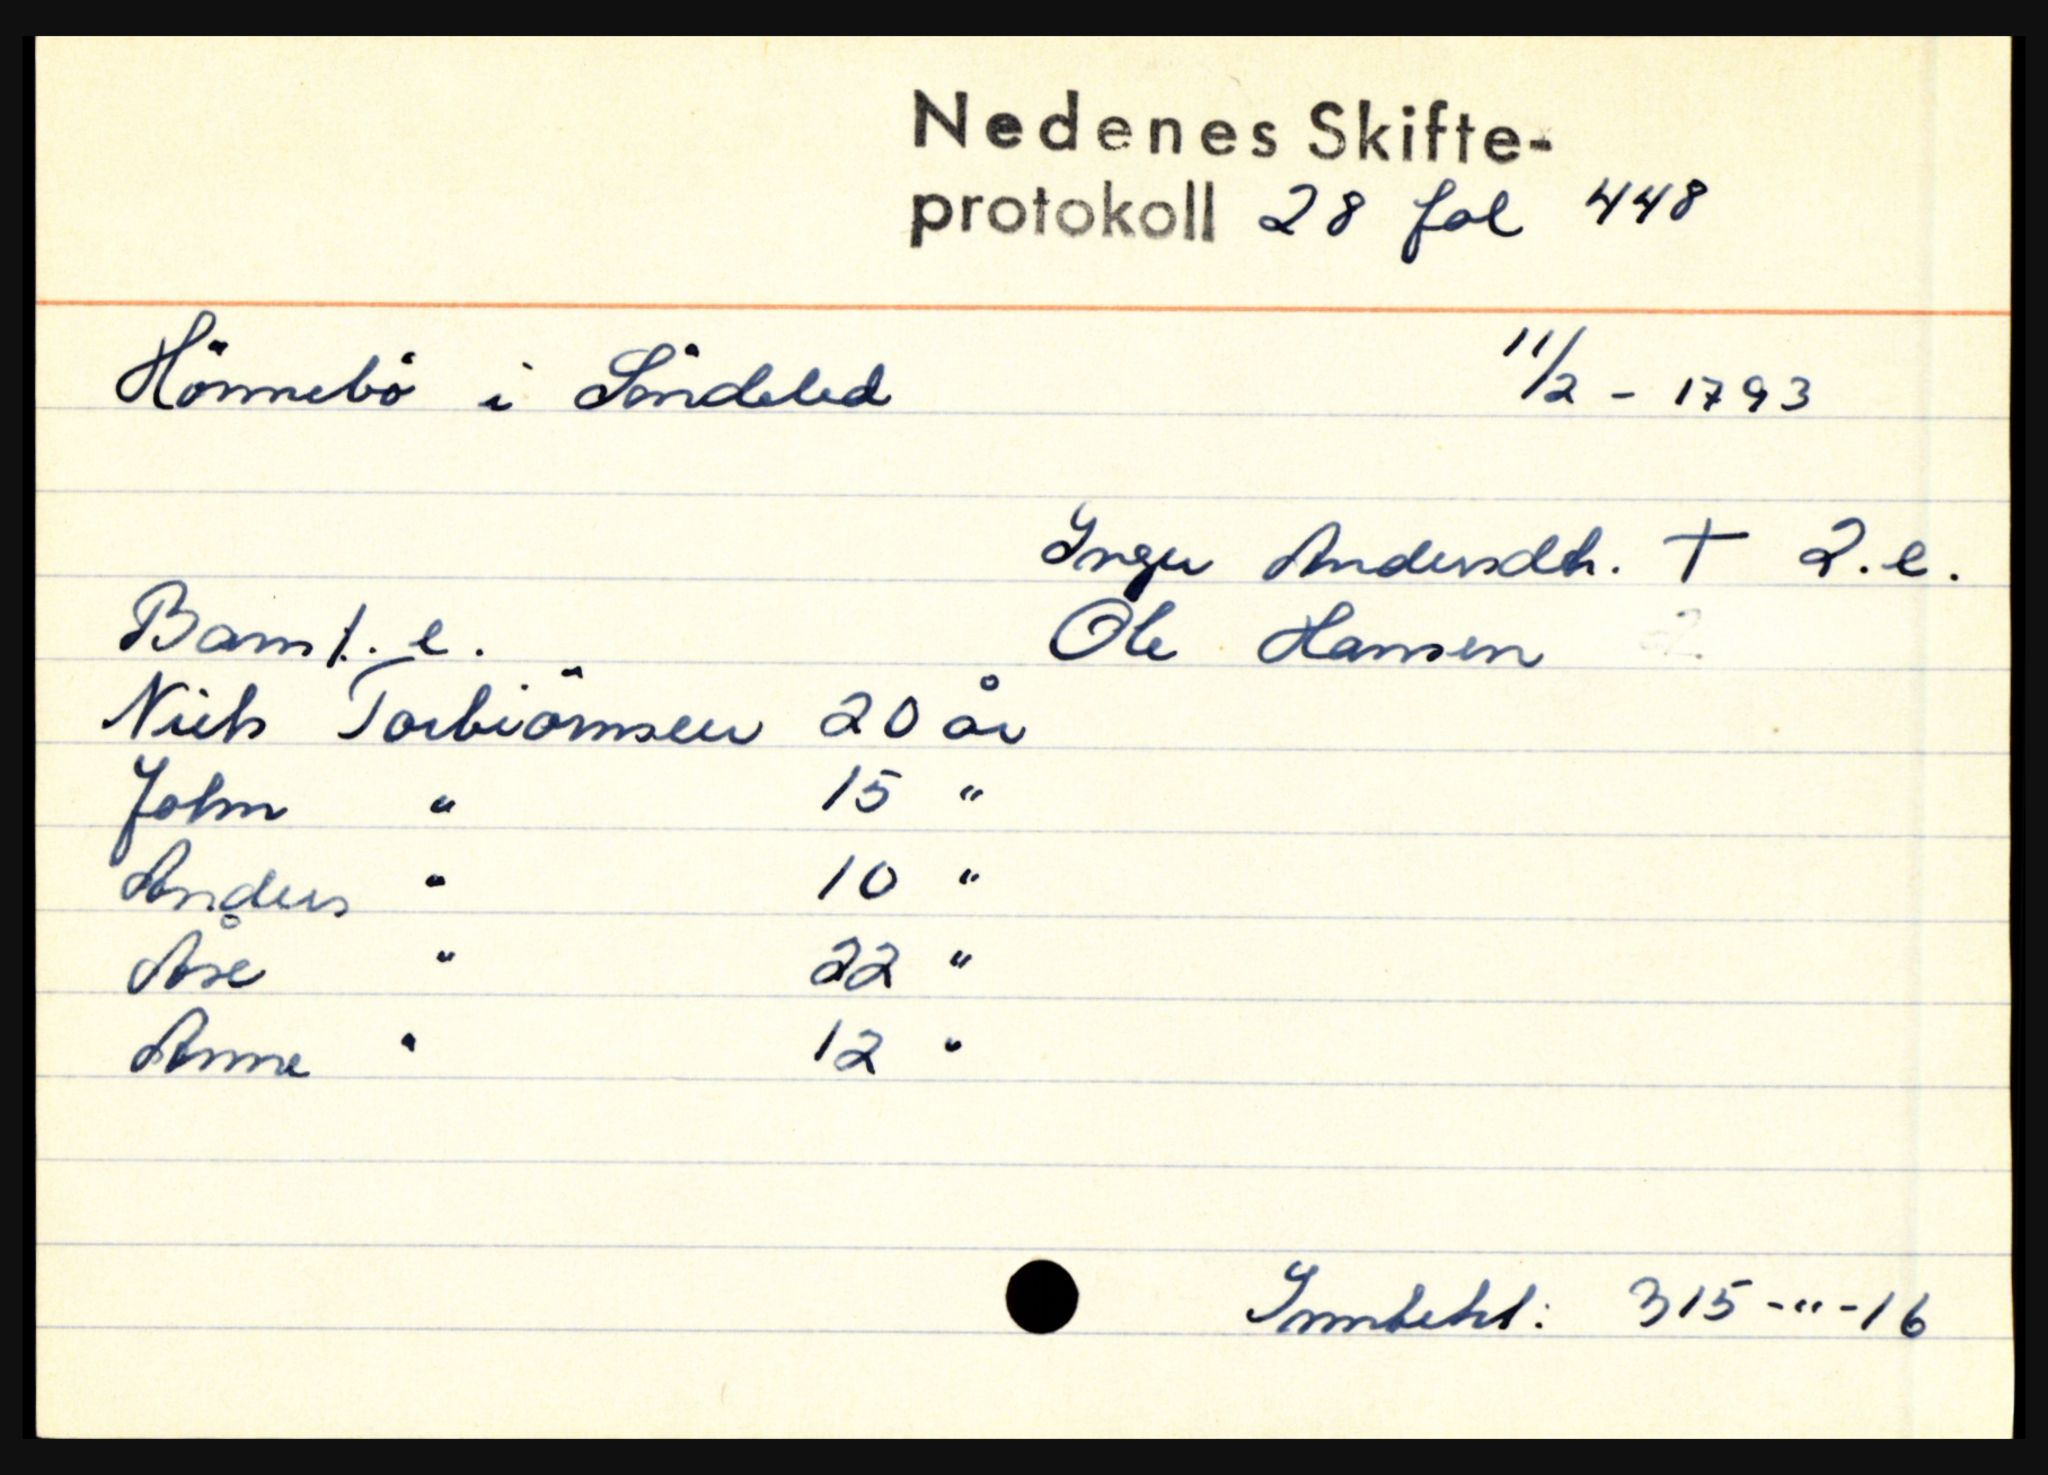 Nedenes Skifte-
protokoll 28 fol 448
Hönnebö i Söndeled 11/2 - 1793
Inger Andersdtr. † 2.e.
Barn 1. e. Ole Hansen
Niels Torbiörnsen 20 år
John " 15 "
Anders " 10 "
Åse " 22 "
Anne " 12 "
Innbehl: 315-"-16